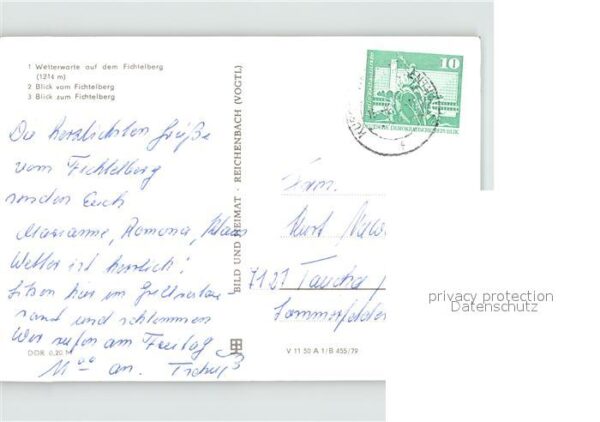 1 Wetterwarte auf dem Fichtelberg
(1214 m)
2 Blick vom Fichtelberg
3 Blick zum Fichtelberg
Die herzlichsten Grüße
vom Fichtelberg
senden Euch
Marianne, Ramona, Klaus
Wetter ist herrlich!
Sitzen hier im Grillrestau-
rant und schlemmen
Wir rufen am Freitag
11⁰⁰ an. Tschüß
DDR 0,20 M
BILD UND HEIMAT · REICHENBACH (VOGTL)
V 11 50 A 1/B 455/79
10
DEUTSCHE DEMOKRATISCHE REPUBLIK
Fam.
Kurt
7127 Taucha
Sommerfelder
privacy protection
Datenschutz